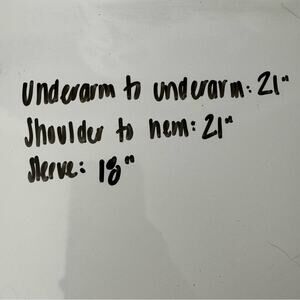 Underarm to underarm: 21"
Shoulder to hem: 21"
Sleeve: 18"